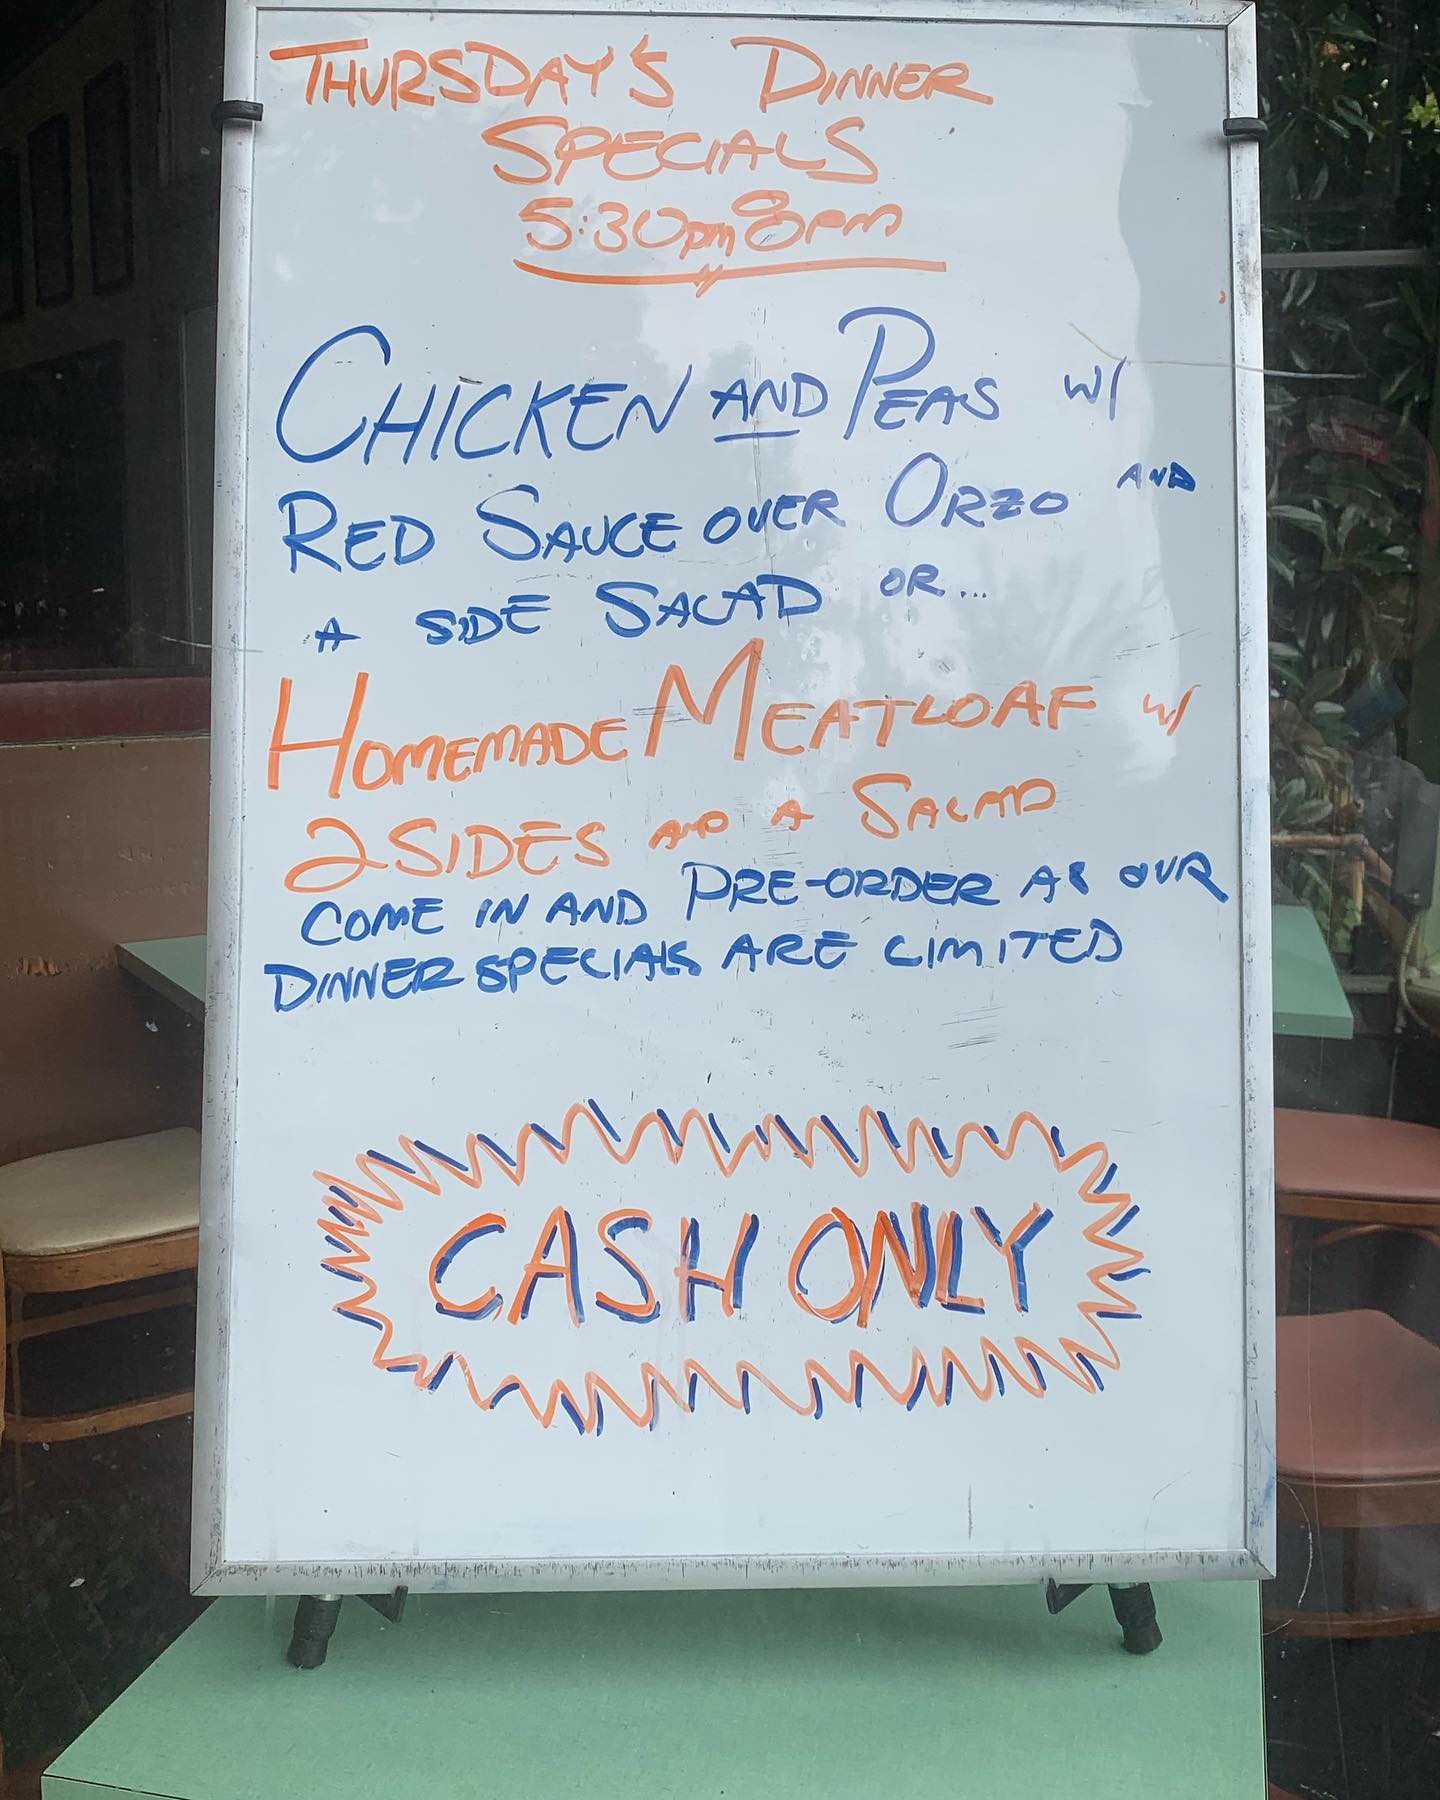 THURSDAY'S DINNER
SPECIALS
5:30pm 8pm
CHICKEN AND PEAS W/
RED SAUCE OVER ORZO AND
A SIDE SALAD OR...
HOMEMADE MEATLOAF W/
2 SIDES AND A SALAD
COME IN AND PRE-ORDER AS OUR
DINNER SPECIALS ARE LIMITED
CASH ONLY